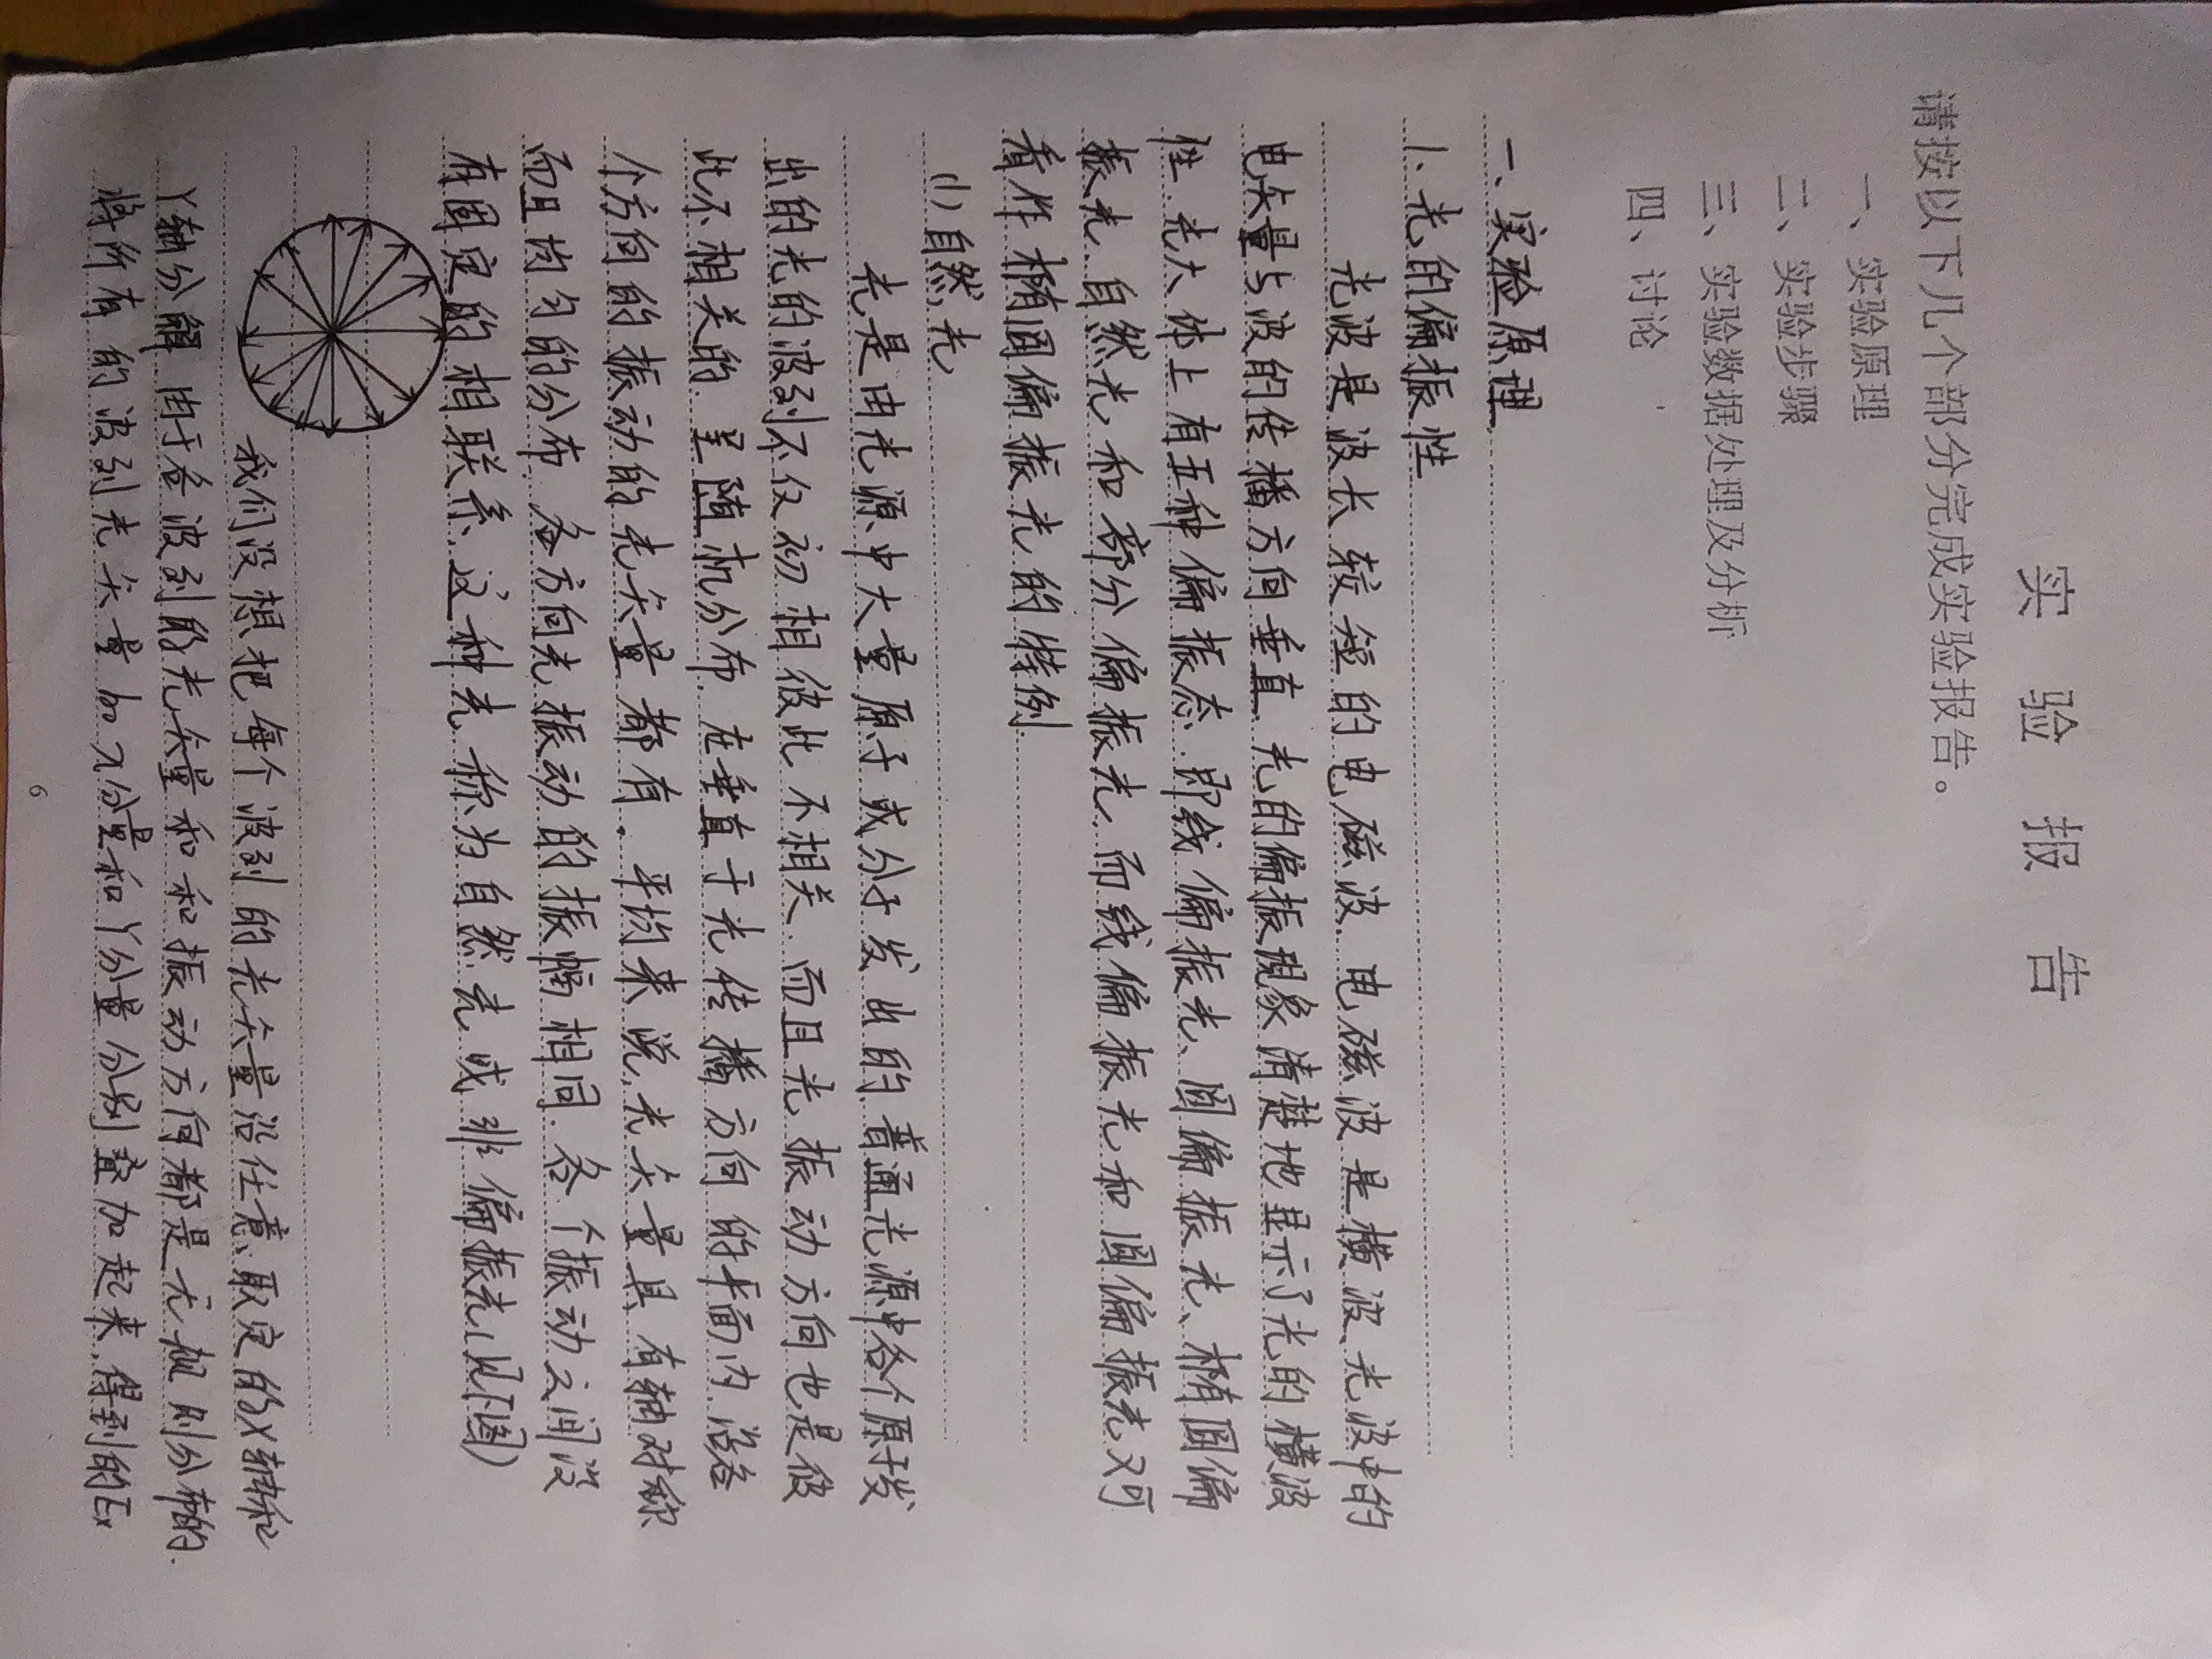 实 验 报 告
请按以下几个部分完成实验报告。
一、实验原理
二、实验步骤
三、实验数据处理及分析
四、讨论
一、实验原理
1、光的偏振性
光波是波长较短的电磁波.电磁波是横波、光波中的
电矢量与波的传播方向垂直.光的偏振现象清楚地显示了光的横波
性.光大体上有五种偏振态.即线偏振光、圆偏振光、椭圆偏
振光.自然光和部分偏振光.而线偏振光和圆偏振光又可
看作椭圆偏振光的特例.
(1)自然光
光是由光源中大量原子或分子发出的.普通光源中各个原子发
出的光的波列不仅初相彼此不相关.而且光振动方向也是彼
此不相关的.呈随机分布.在垂直于光传播方向的平面内.沿各
个方向的振动的光矢量都有.平均来说,光矢量具有轴对称
而且均匀的分布.各方向光振动的振幅相同.各个振动之间没
有固定的相联系.这种光称为自然光或非偏振光(见下图)
我们设想把每个波列的光矢量沿任意取定的X轴和
Y轴分解.由于各波列的光矢量和和振动方向都是无规则分布的.
将所有的波列光矢量加x分量和Y分量分别叠加起来.得到的Ex
6